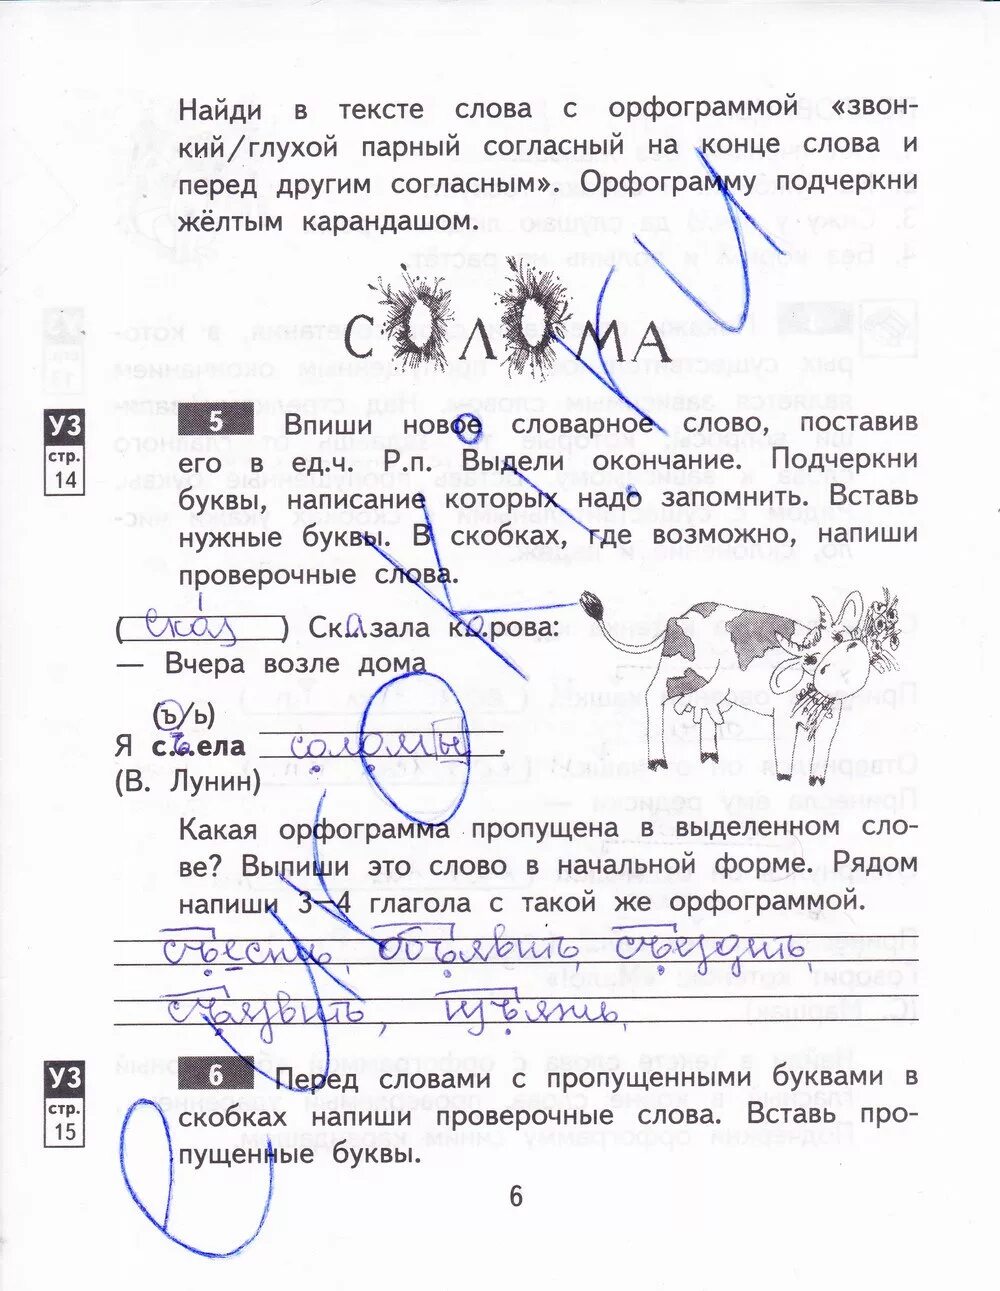 Найди в тексте слова с орфограммой «звон-
кий/глухой парный согласный на конце слова и
перед другим согласным». Орфограмму подчеркни
жёлтым карандашом.
СОЛОМА
УЗ
стр.
14
5 Впиши новое словарное слово, поставив
его в ед.ч. Р.п. Выдели окончание. Подчеркни
буквы, написание которых надо запомнить. Вставь
нужные буквы. В скобках, где возможно, напиши
проверочные слова.
( сказ ) Сказала корова:
— Вчера возле дома
(ъ/ь)
Я съела соломы .
(В. Лунин)
Какая орфограмма пропущена в выделенном сло-
ве? Выпиши это слово в начальной форме. Рядом
напиши 3—4 глагола с такой же орфограммой.
съесть, объявить съездить,
съязвить, изъять,
УЗ
стр.
15
6 Перед словами с пропущенными буквами в
скобках напиши проверочные слова. Вставь про-
пущенные буквы.
6